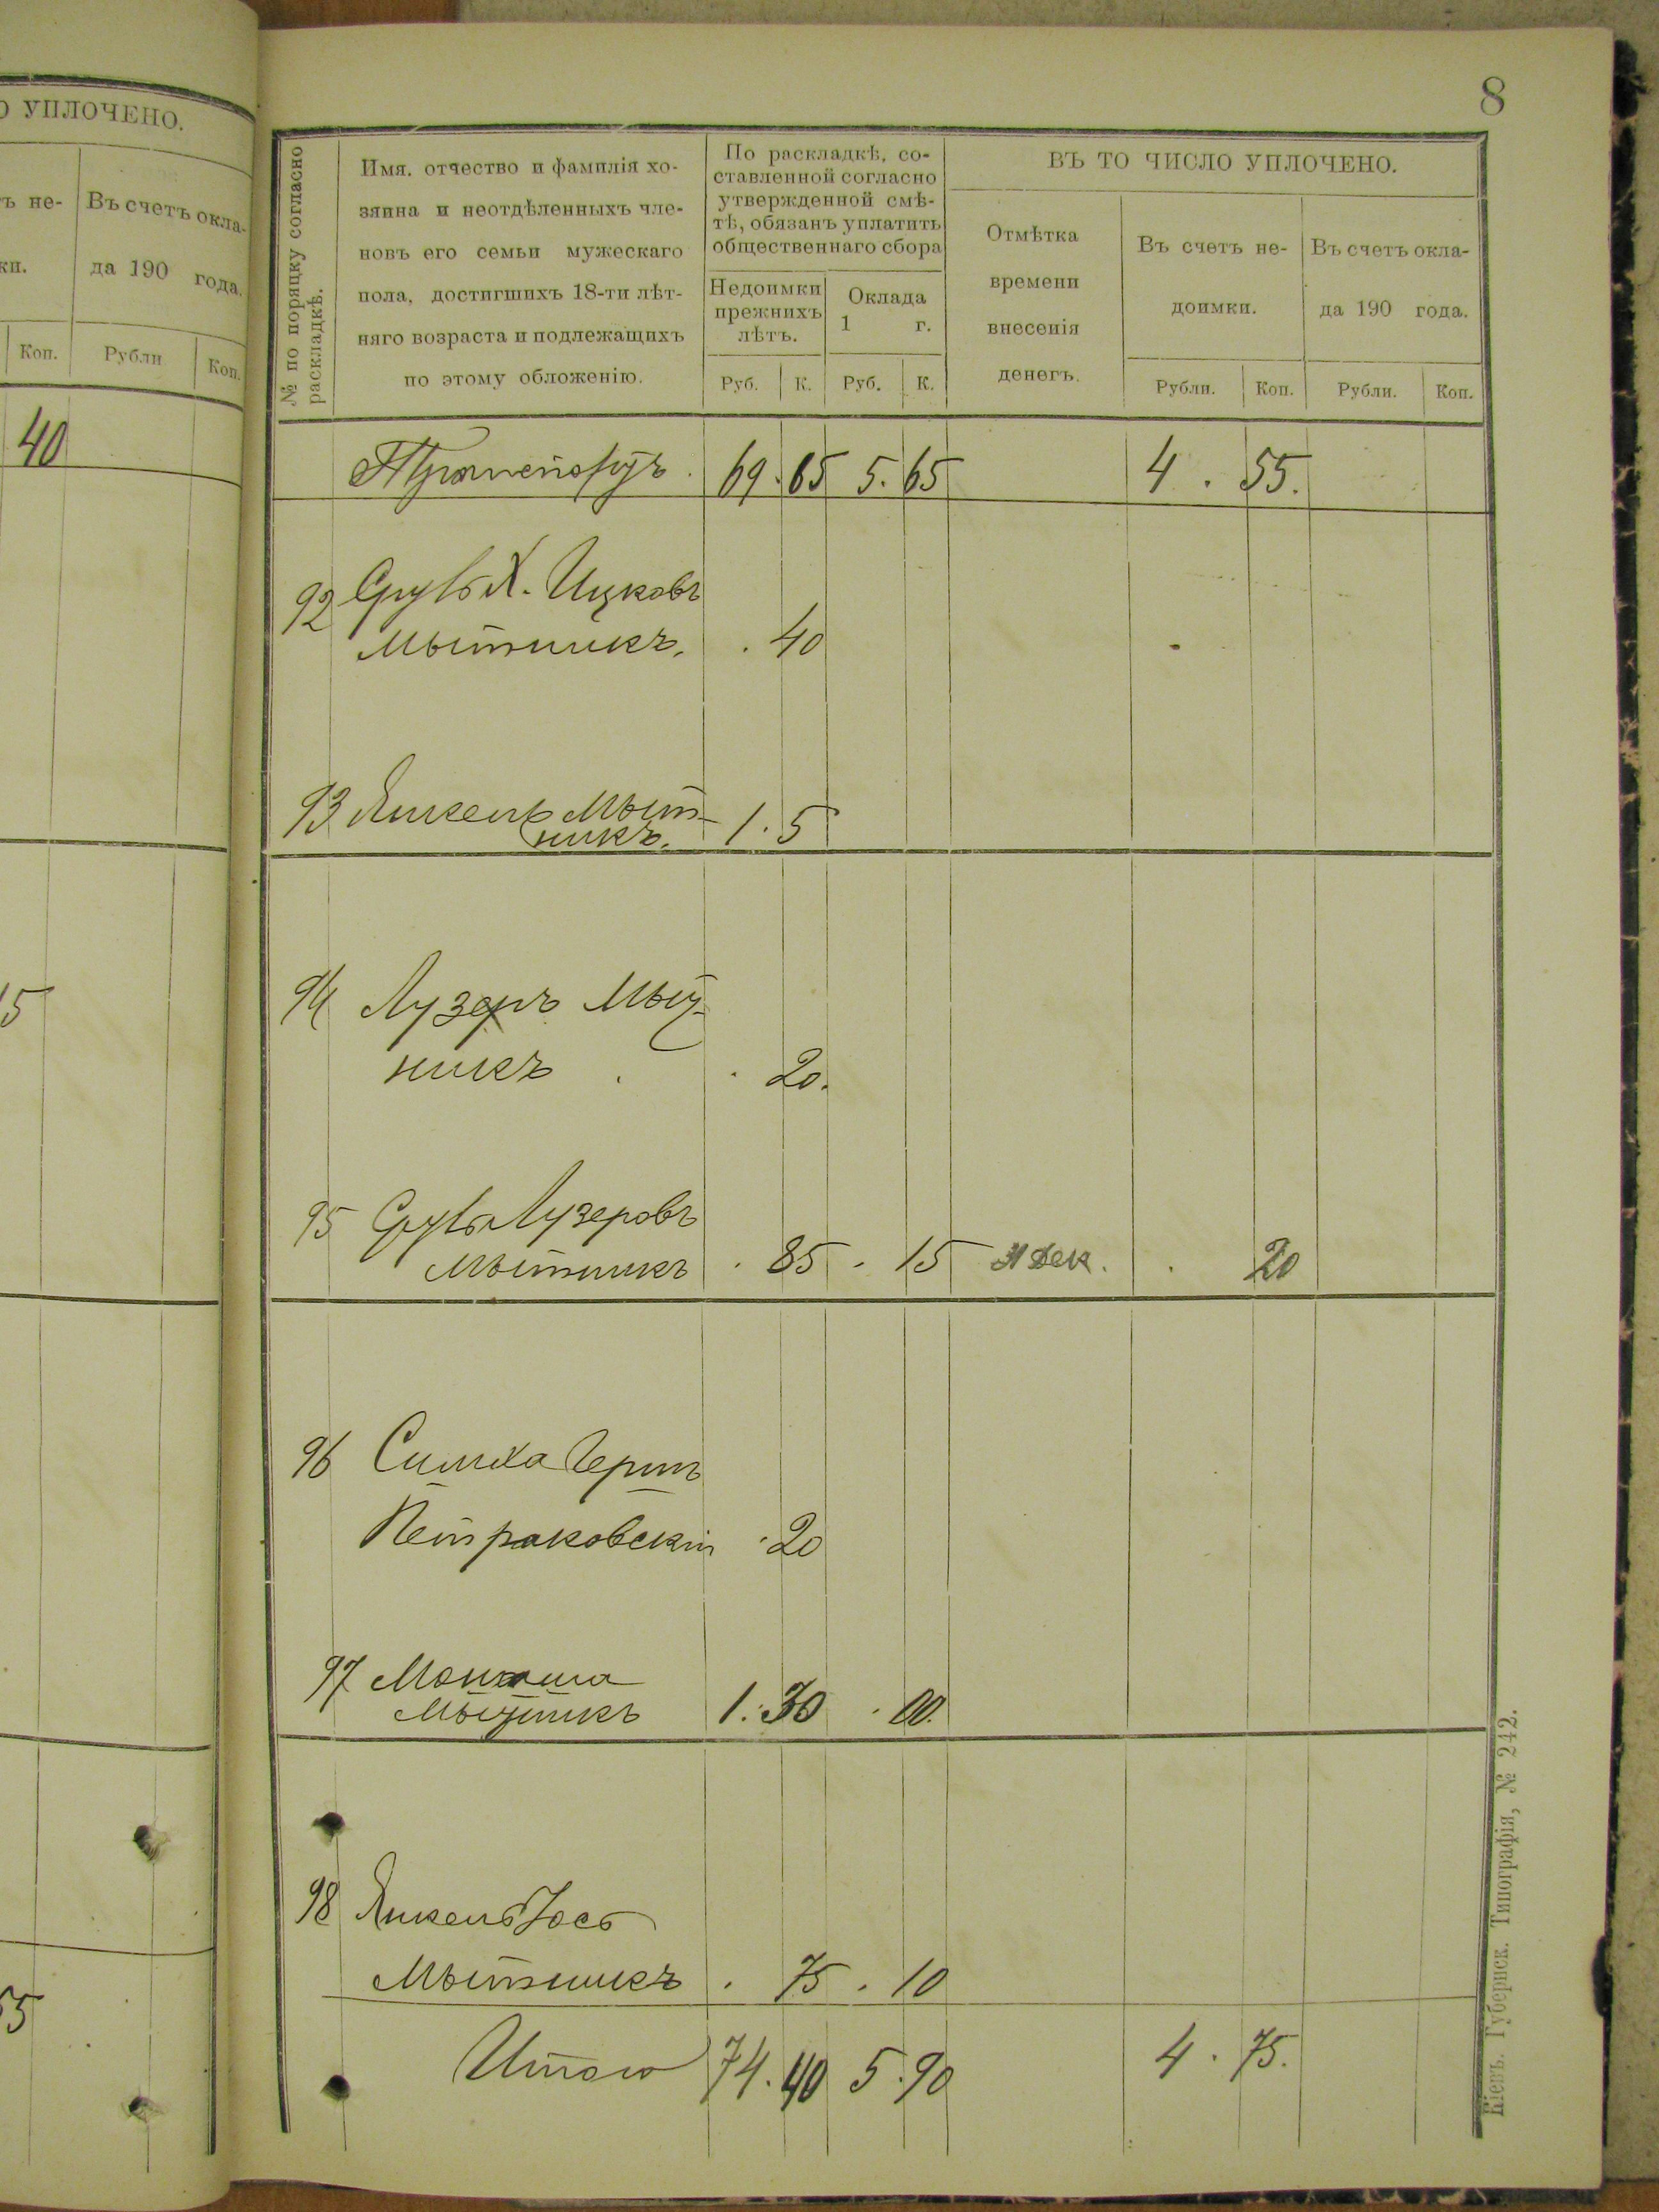 О УПЛОЧЕНО.
ъ не-
Въ счетъ окла-
ки.
да 190 года.
Коп.
Рубли
Коп.
40
15
55
8
№ по поряцку согласно раскладкѣ.
Имя, отчество и фамилія хо-
зяина и неотдѣленныхъ чле-
новъ его семьи мужескаго
пола, достигшихъ 18-ти лѣт-
няго возраста и подлежащихъ
по этому обложенію.
По раскладкѣ, со-
ставленной согласно
утвержденной смѣ-
тѣ, обязанъ уплатить
общественнаго сбора
Недоимки
прежнихъ
лѣтъ.
Оклада
1 г.
Руб. К. Руб. К.
ВЪ ТО ЧИСЛО УПЛОЧЕНО.
Отмѣтка
времени
внесенія
денегъ.
Въ счетъ не-
доимки.
Въ счетъ окла-
да 190 года.
Рубли. Коп. Рубли. Коп.
Транспортъ. 69. 65 5. 65 4. 55.
92 Сруль Х. Ицковъ
Мытникъ. . 40
93 Янкель Мыт-
никъ. 1. 5
94 Лузеръ Мыт-
никъ . 20.
95 Сруль Лузеровъ
Мытникъ . 85 . 15 31 Дек. . 20
96 Симха Герш
Петраковскій . 20
97 Монаша
Мытникъ 1. 30
98 Янкель Іось
Мытникъ . 75 . 10
Итого 74. 40 5. 90 4. 75.
Кіевъ. Губернск. Типографія, № 242.